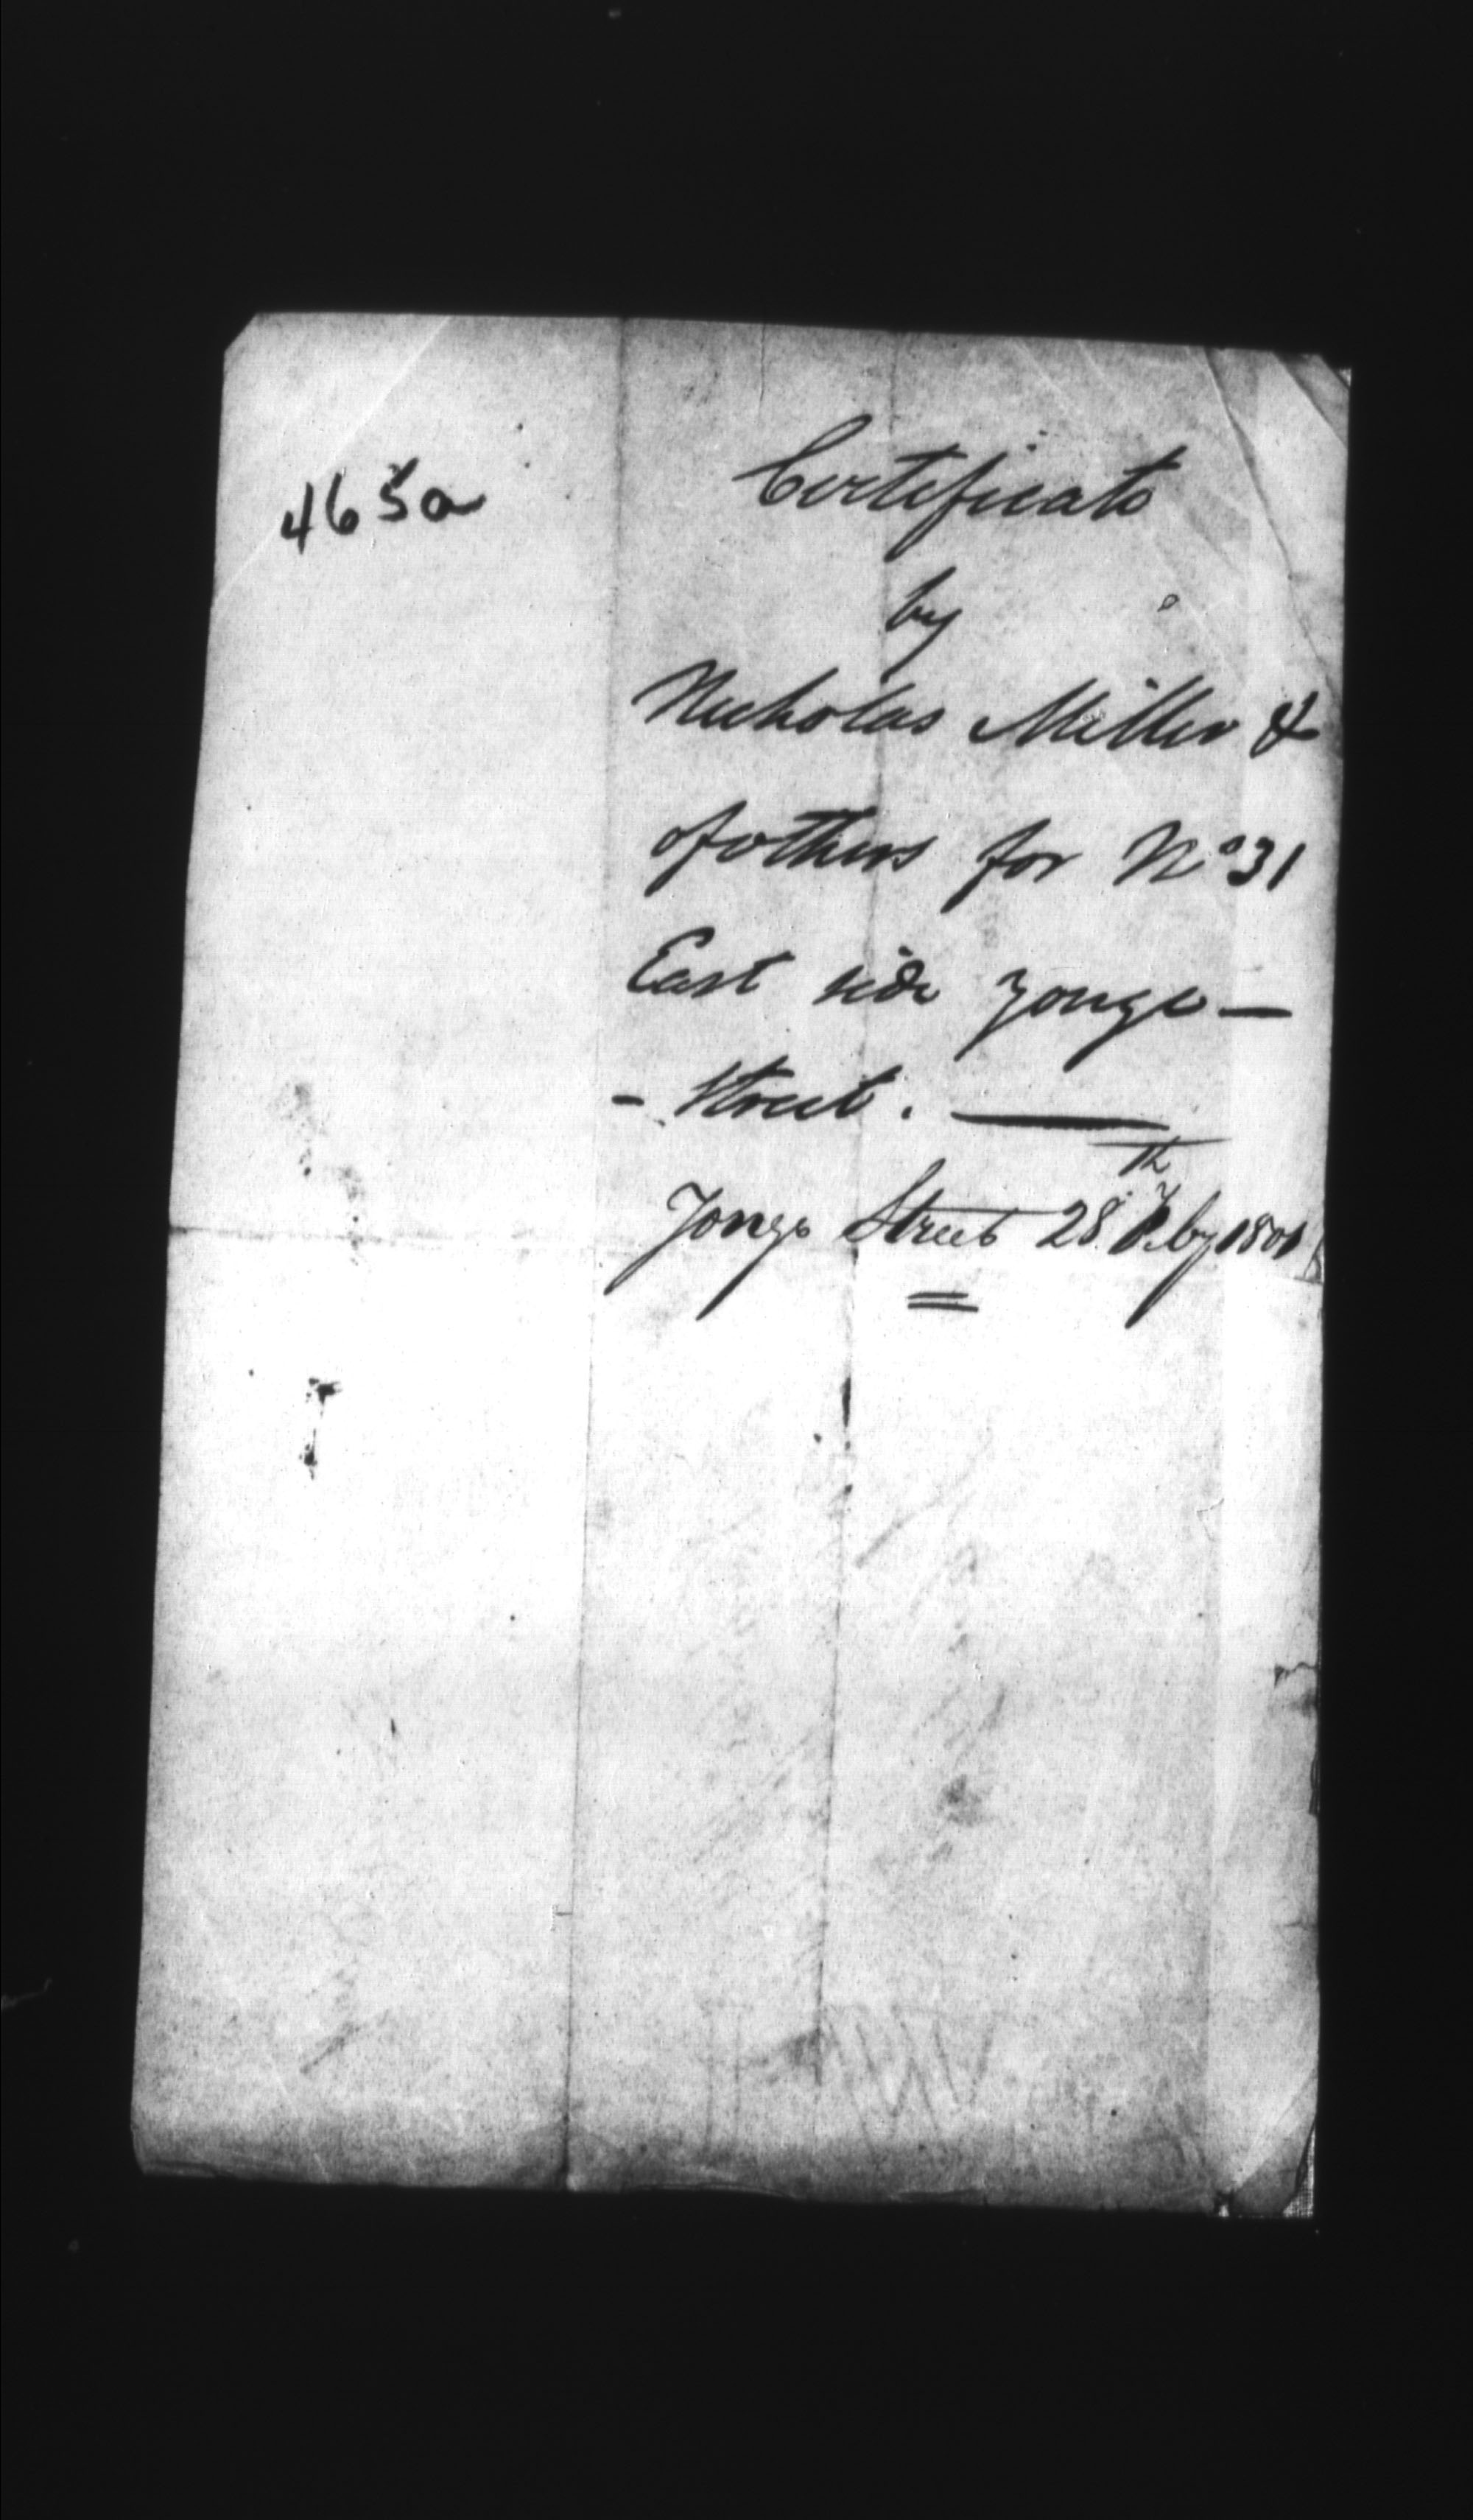 465a
Certificate
by
Nicholas Miller &
of others for No 31
East side Yonge —
- Street. —
Yonge Street 28th Feby 1801